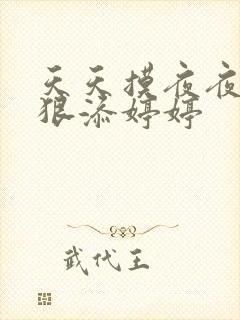 天天摸夜夜
狠添婷婷
武代王